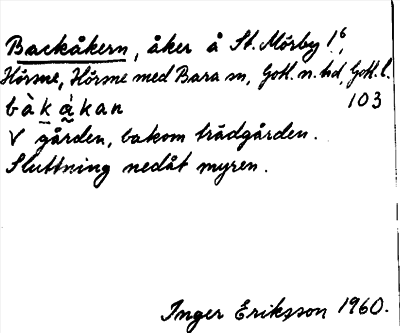 Backåkern, åker å St. Mörby 1⁶,
Hörsne, Hörsne med Bara sn, Gotl. n. hd, Gotl. l.
bàkàkan 103
V gården, bakom trädgården.
Sluttning nedåt myren.
Inger Eriksson 1960.